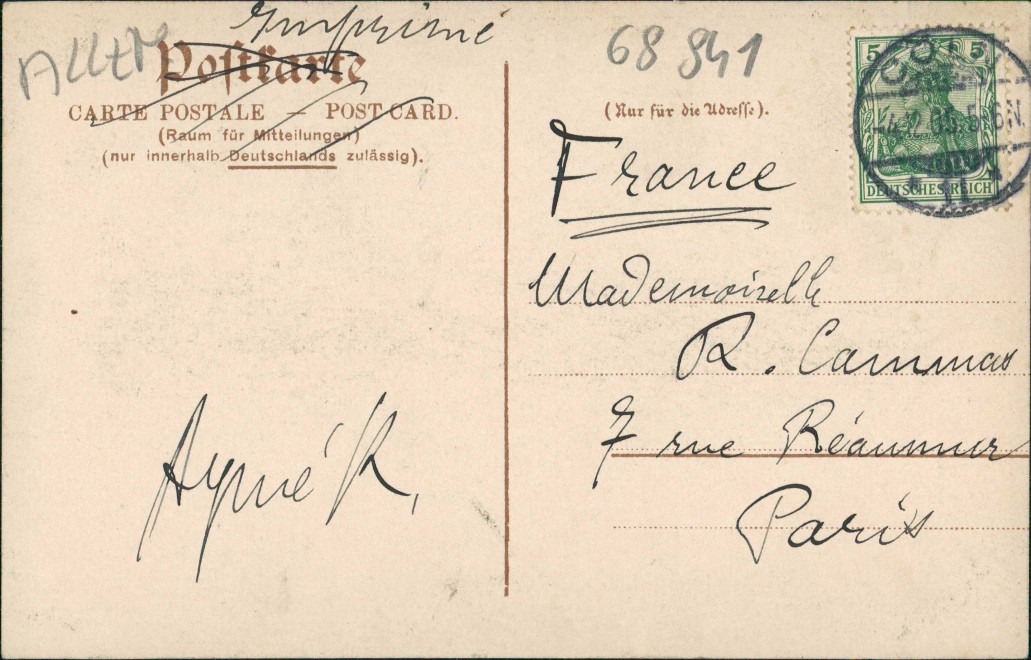 Imprimé
Postkarte
CARTE POSTALE — POST CARD.
(Raum für Mitteilungen)
(nur innerhalb Deutschlands zulässig).
68 841
(Nur für die Adresse).
5 5
DEUTSCHES REICH
France
Mademoiselle
R. Cammas
7 rue Réaumur
Paris